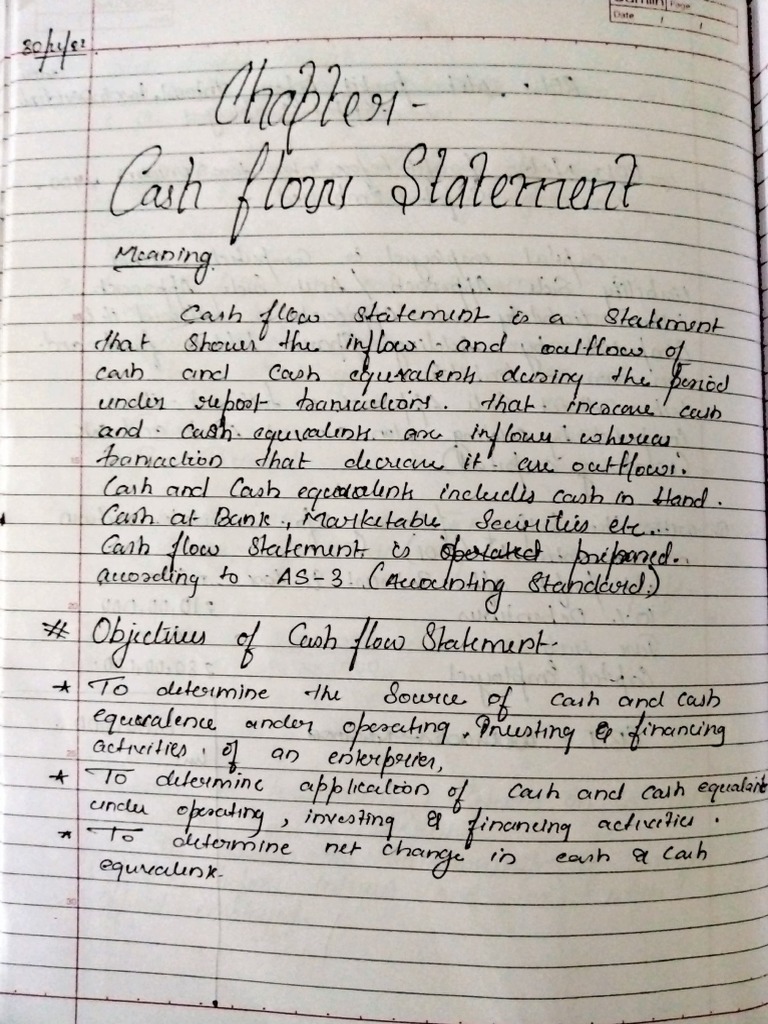 Page
Date / /
Chapter:-
Cash flow Statement
Meaning
Cash flow statement is a statement
that shows the inflow and outflow of
cash and cash equivalents during the period
under report transactions. that increase cash
and cash equivalents are inflows whereas
transaction that decrease it are outflows.
Cash and Cash equivalents includes cash in Hand.
Cash at Bank, Marketable Securities etc...
Cash flow Statement is prepared.
according to AS-3 (Accounting Standard)
# Objectives of Cash flow Statement-
* To determine the Source of cash and cash
equivalence under operating, Investing & financing
activities. of an enterprises,
* To determine application of cash and cash equivalent
under operating, investing & financing activities.
* To determine net change in cash & cash
equivalents.